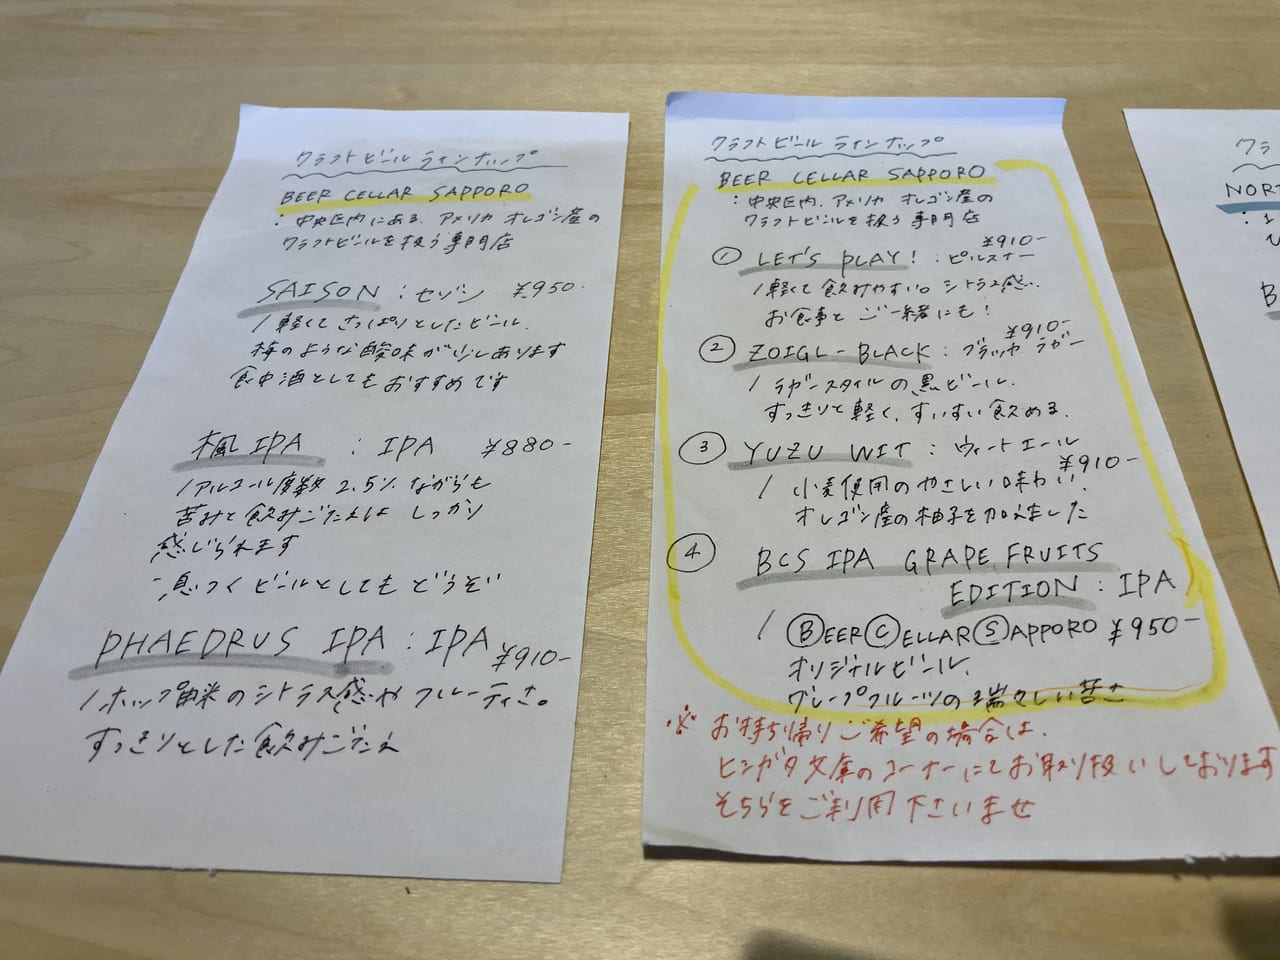 クラフトビールラインナップ
BEER CELLAR SAPPORO
:中央区内にある、アメリカ オレゴン産の
クラフトビールを扱う専門店
SAISON : セゾン ¥950-
/軽くてさっぱりとしたビール。
梅のような酸味が少しあります
食中酒としてもおすすめです
楓IPA : IPA ¥880-
/アルコール度数 2.5% ながらも
苦みと飲みごたえは しっかり
感じられます
一息つくビールとしても どうぞ
PHAEDRUS IPA : IPA
¥910-
/ホップ由来のシトラス感や フルーティさ。
すっきりとした飲みごたえ
クラフトビール ラインナップ
BEER CELLAR SAPPORO
:中央区内、アメリカ オレゴン産の
クラフトビールを扱う 専門店
¥910-
① LET'S PLAY! : ピルスナー
/軽くて飲みやすい。シトラス感。
お食事と ご一緒にも!
¥910-
② ZOIGL-BLACK : ブラック ラガー
/ラガースタイルの黒ビール。
すっきりと軽く、すいすい飲める。
③ YUZU WIT : ウィートエール
¥910-
/小麦使用のやさしい味わい。
オレゴン産の柚子を加えました
④ BCS IPA GRAPE FRUITS
EDITION : IPA
/ⒷEERⒸELLARⓈAPPORO ¥950-
オリジナルビール。
グレープフルーツの瑞々しい苦さ
※お持ち帰りご希望の場合は、
ヒシガタ文庫のコーナーにてお取り扱いしております
そちらをご利用下さいませ
クラ
NOR
B